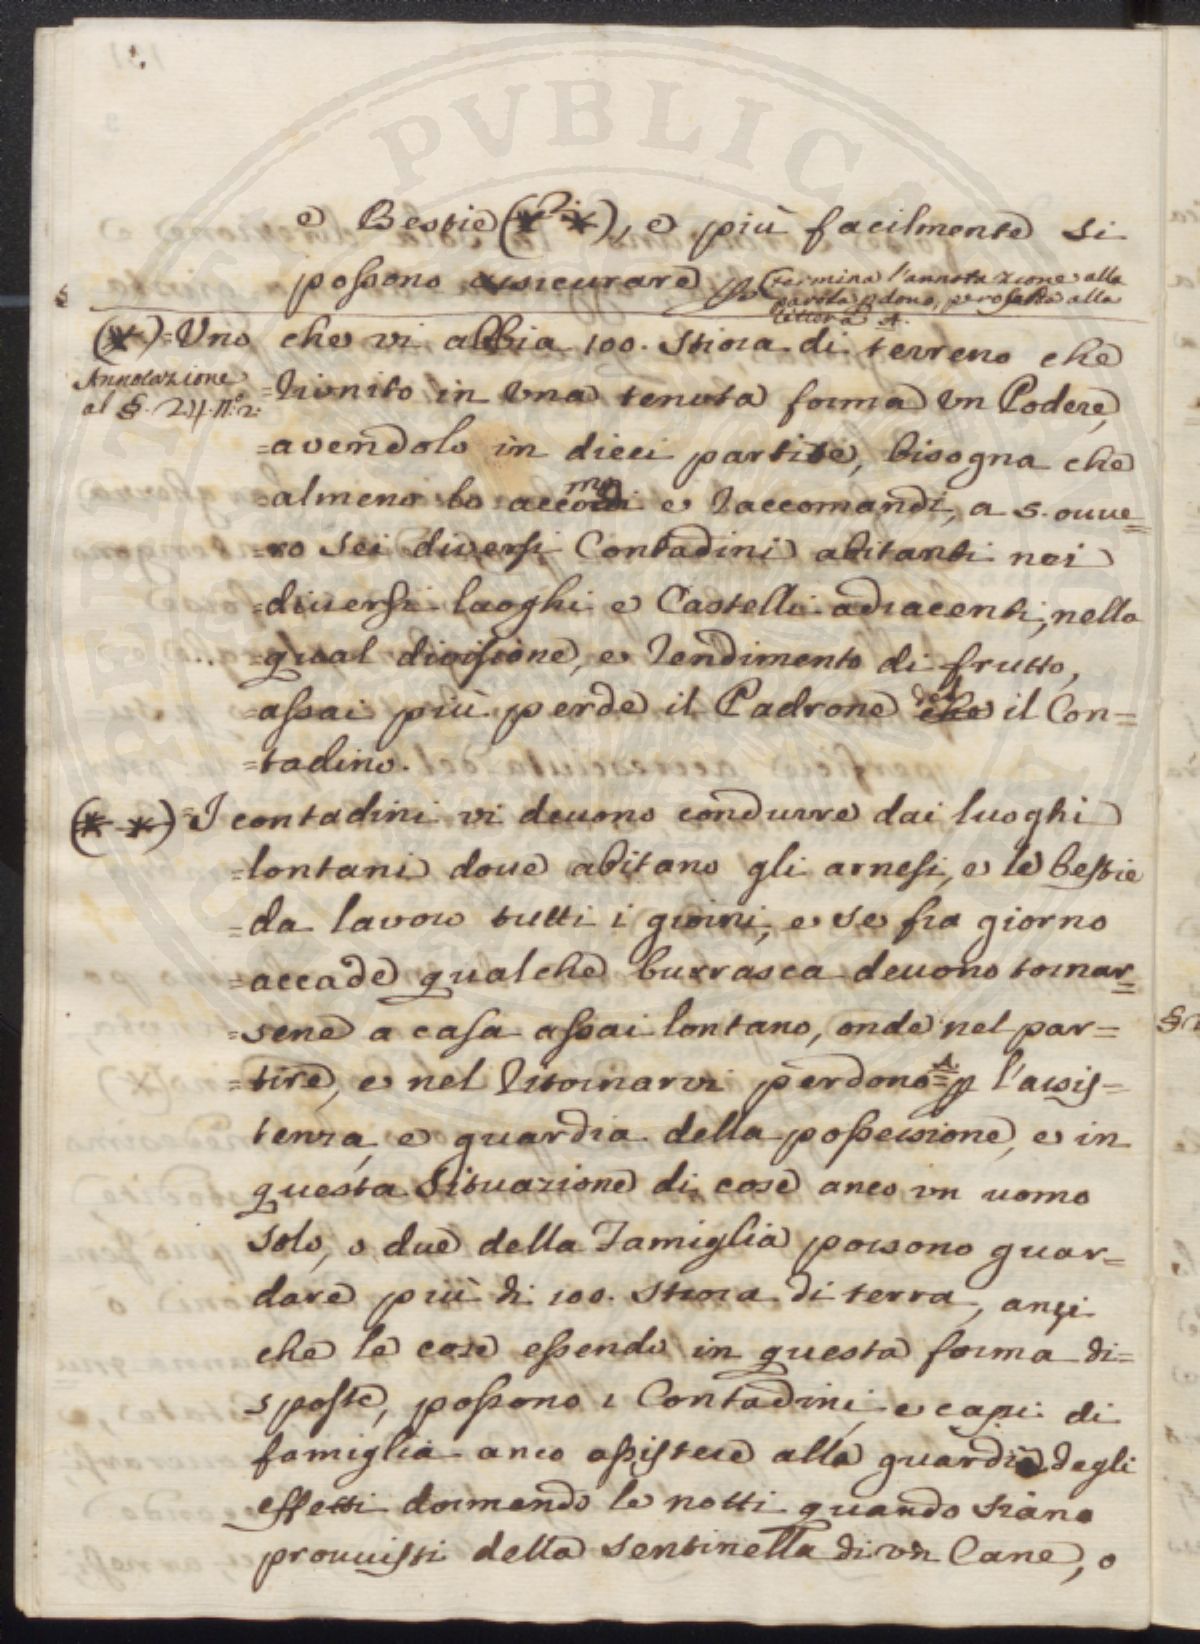 e Bestie (* 2: *), e più facilmente si
possono assicurare
(termina l'annotazione alla
parola perdono, però salta alla
lettera A.
(*) = Uno che vi abbia 100. stiora di terreno che
Annotazione
al §. 24. N.° 2:
=riunito in una tenuta forma un Podere,
=avendolo in dieci partite, bisogna che
=almeno lo accomodi e raccomandi, a 5. ouue=
=ro sei diversi Contadini abitanti nei
=diuersi luoghi e Castelli adiacenti, nella
=qual divisione, e rendimento di frutto,
=assai più perde il Padrone che del il Con=
=tadino.
(* *) = I contadini vi deuono condurre dai luoghi
=lontani doue abitano gli arnesi, e le bestie
=da lavoro tutti i giorni, e se fra giorno
=accade qualche burrasca deuono tornar=
=sene a casa assai lontano, onde nel par=
=tire, e nel ritornarvi perdono= A p l'assis=
tenza, e guardia della possessione, e in
questa situazione di cose anco un uomo
solo, o due della Famiglia possono guar=
dare più di 100. stiora di terra, anzi
che le cose essendo in questa forma di=
sposte, possono i Contadini, e capi di
famiglia anco assistere alla guardia degli
effetti dormendo le notti quando siano
prouuisti della sentinella di un Cane, o
PVBLIC